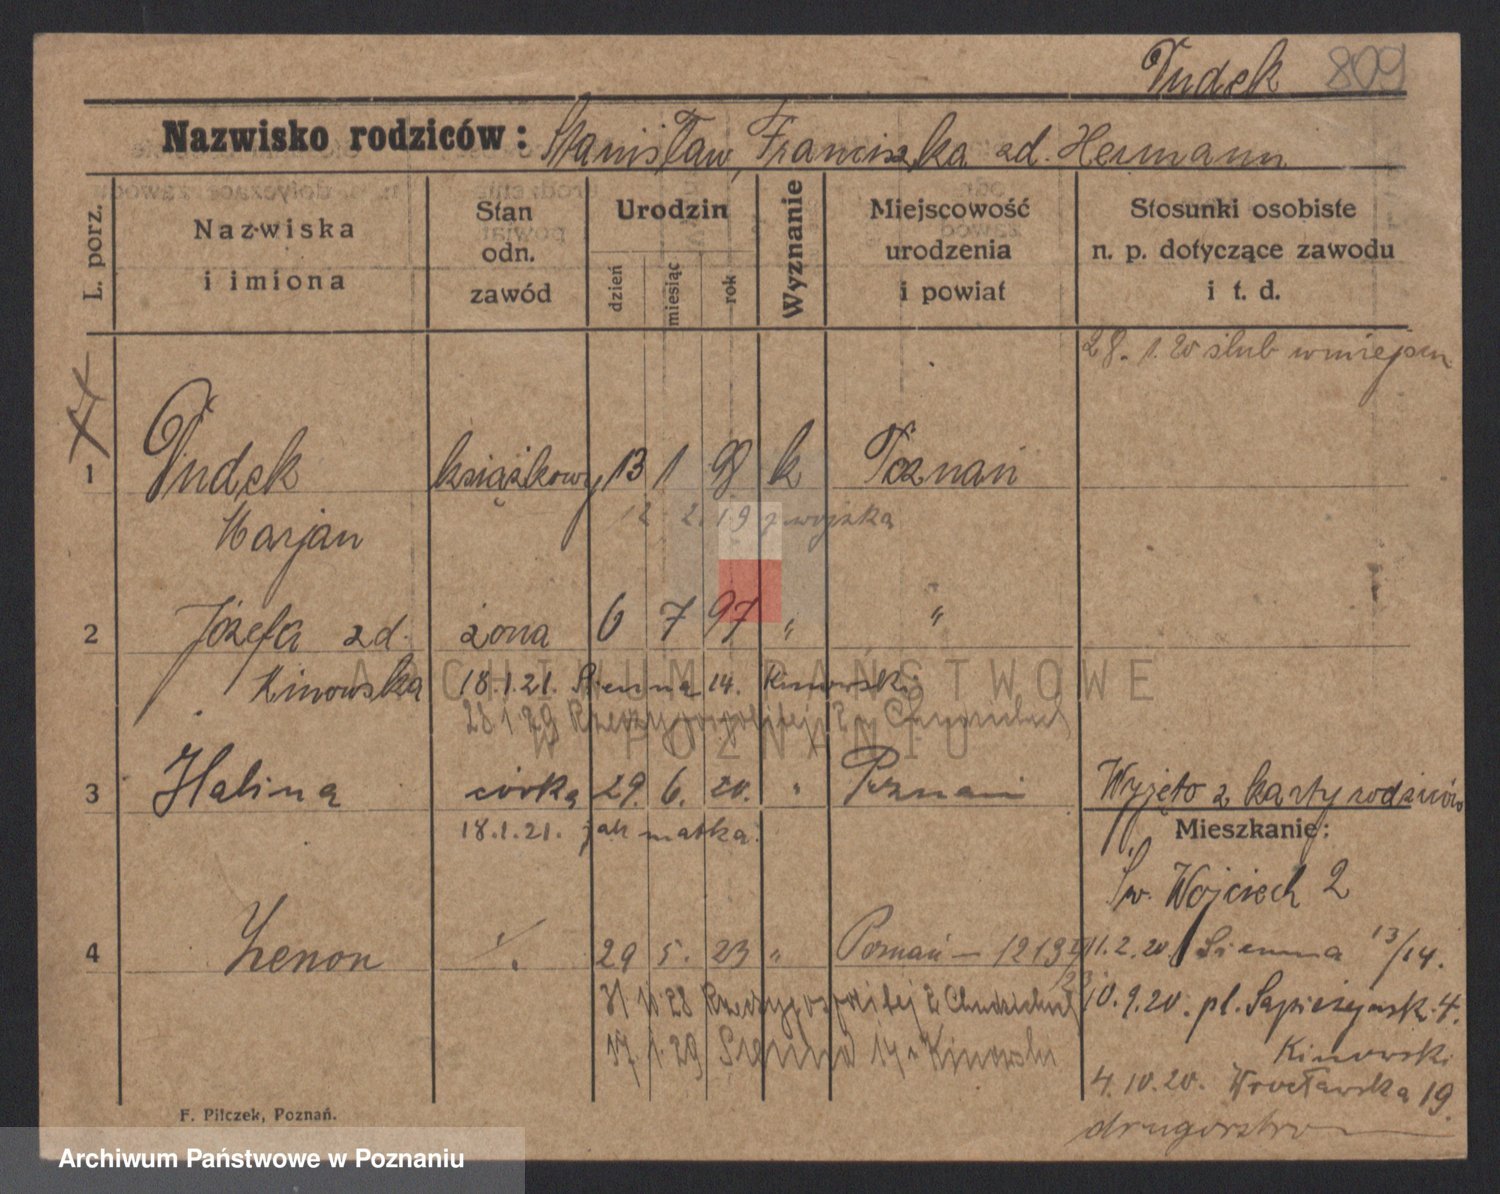 Dudek 809
Nazwisko rodziców: Stanisław, Franciszka zd. Hermann
L. porz.
Nazwiska i imiona
Stan odn. zawód
Urodzin
dzień
miesiąc
rok
Wyznanie
Miejscowość urodzenia i powiat
Stosunki osobiste n. p. dotyczące zawodu i t. d.
28. 1. 20 ślub w miejscu
1 Dudek książkowy 13 1 98 k Poznań
Marjan
12 2. 19 z wojska
2 Józefa zd. żona 6 7 97 " "
Kinowska 18.1.21. Sienna 14. Kinowski
28 1 29 Rzeczypospolitej 2
3 Halina córka 29. 6. 20. " Poznań
Wyjęto z karty rodziców
18.1.21. jak matka.
Mieszkanie:
Św. Wojciech 2
4 Zenon ./. 29 5. 23 " Poznań -
11.2.20 Sienna 13/14.
31 10 28 Rzeczypospolitej 2
10.9.20. pl. Sapieżyński 4.
17. 1. 29 Sienna 14 Kinowski
Kinowski
4.10.20. Wrocławska 19.
F. Pilczek, Poznań.
ARCHIWUM PAŃSTWOWE
W POZNANIU
Archiwum Państwowe w Poznaniu